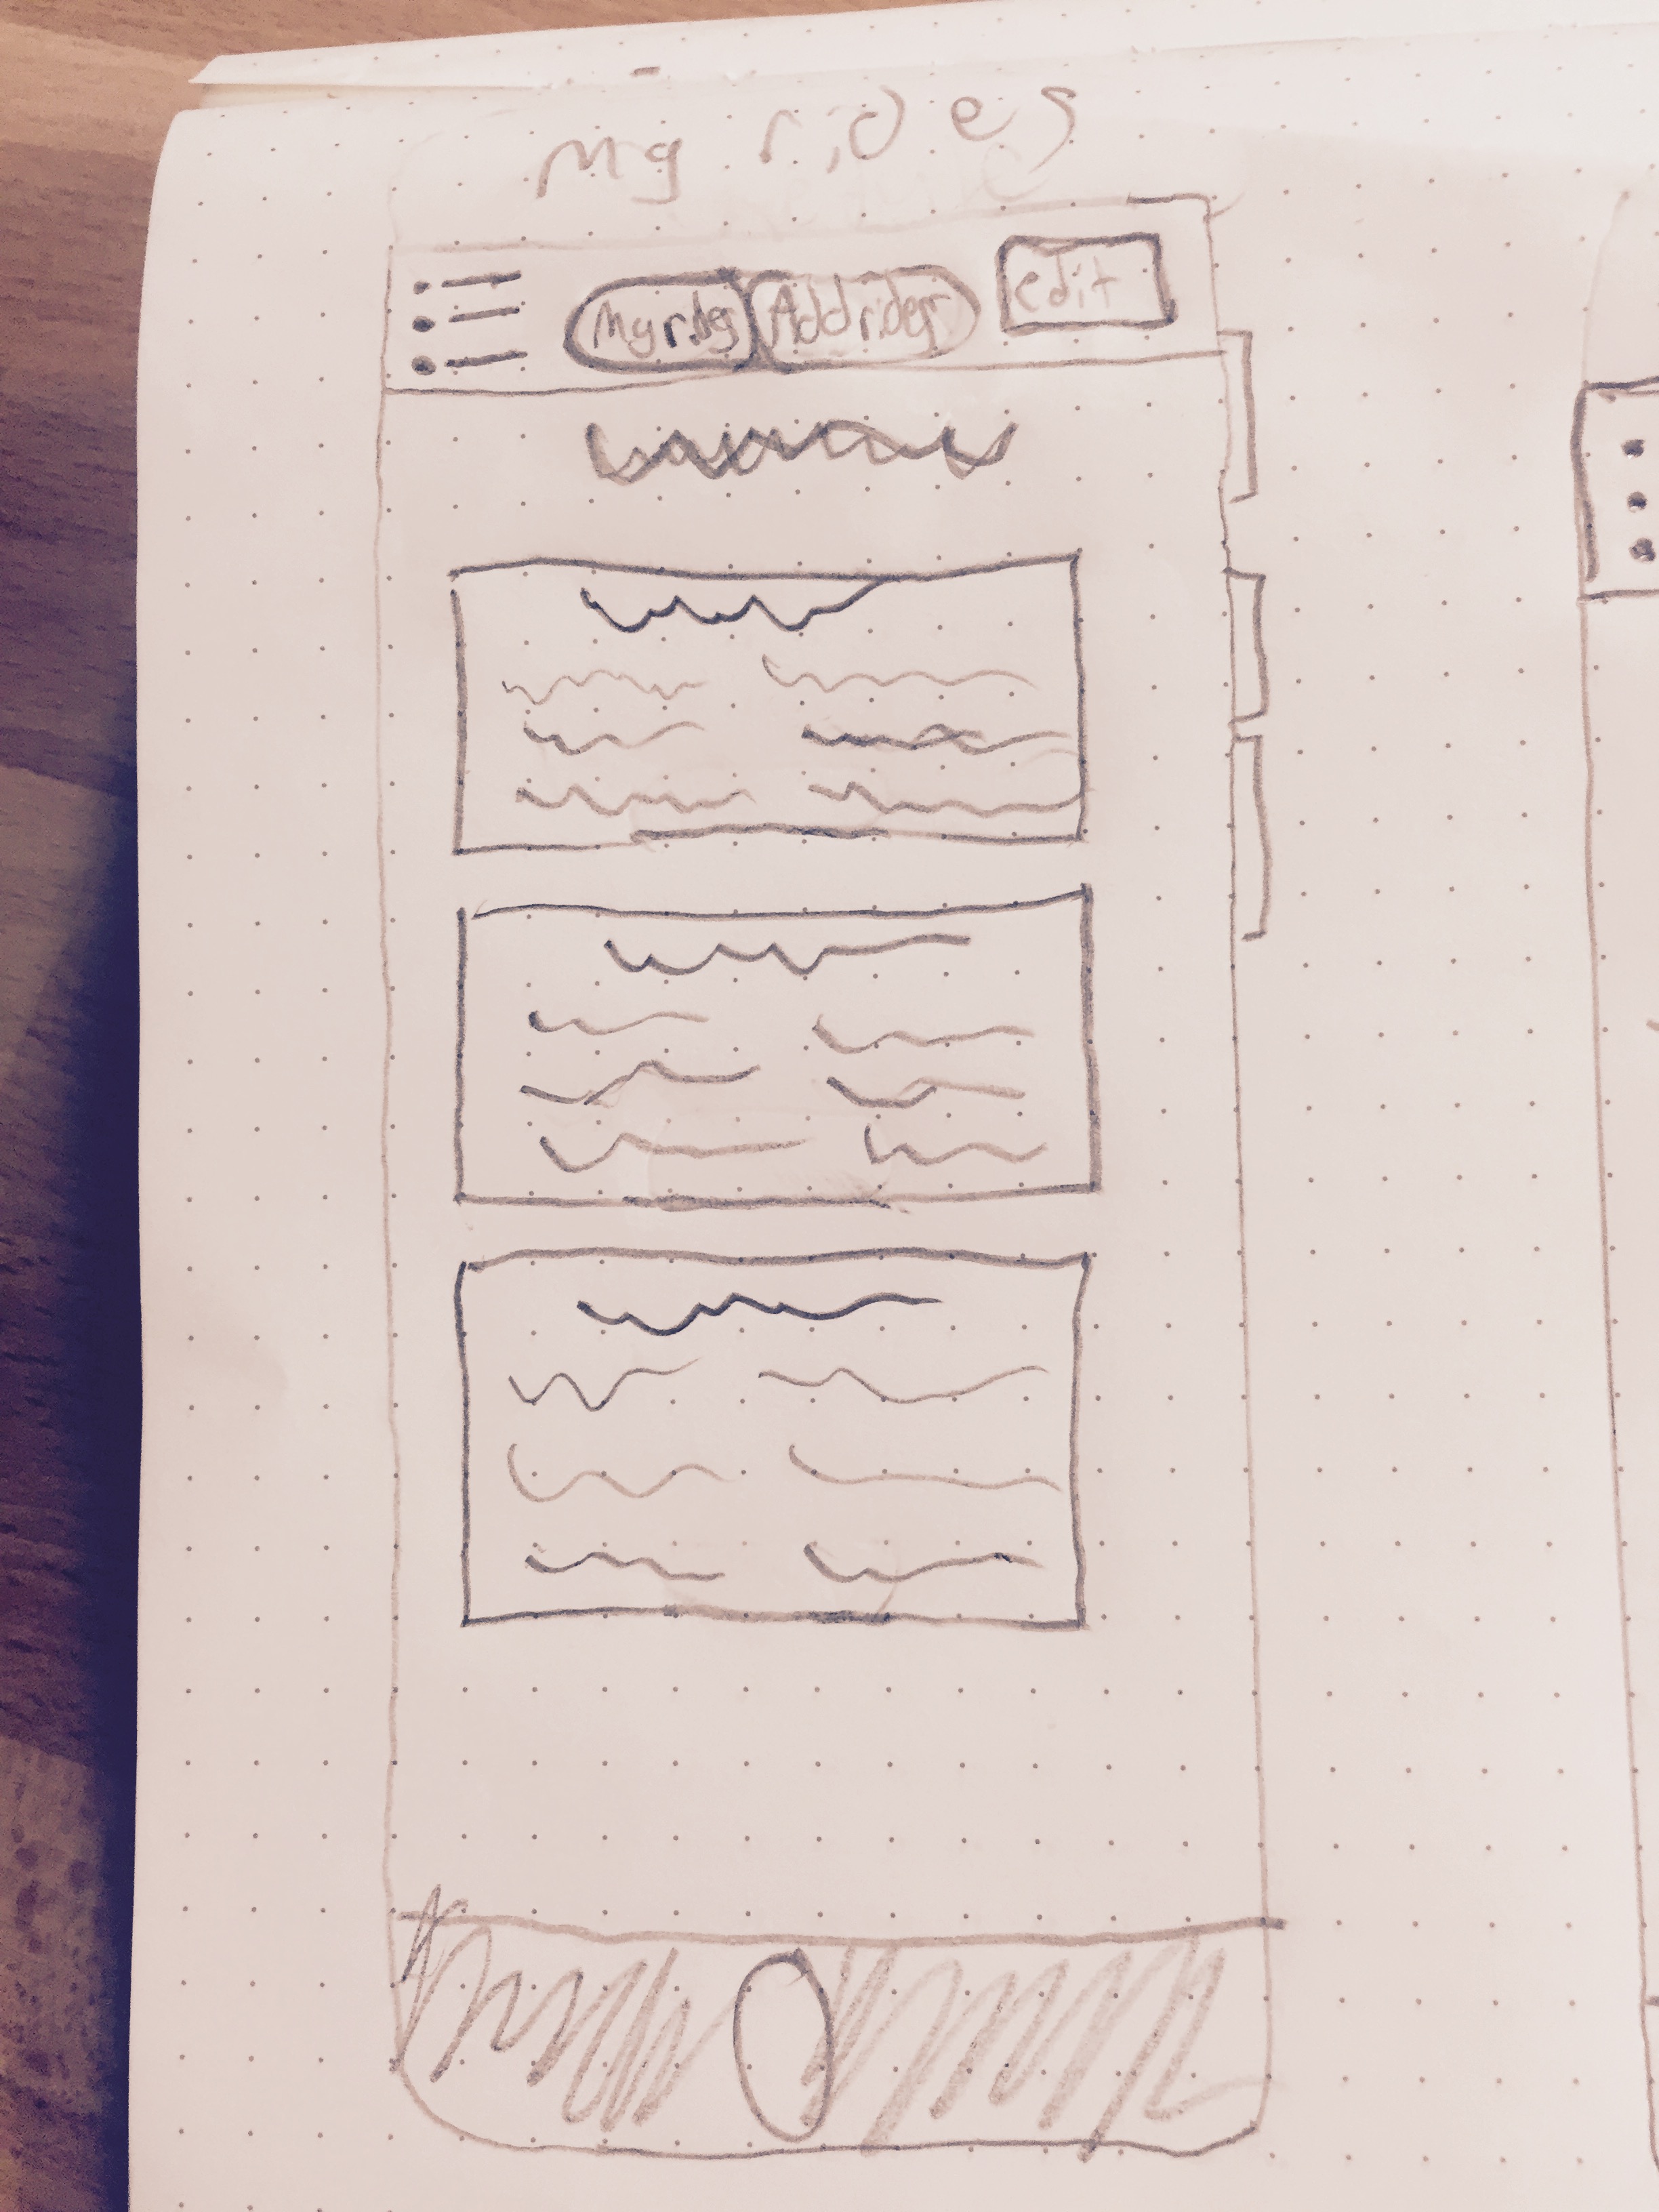 My rides
My rides Add rides edit